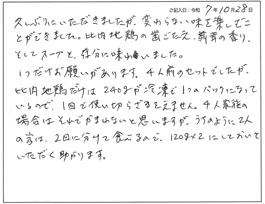 ご記入日:令和 7年10月28日
久しぶりにいただきましたが、変わらない味を楽しむこ
とができました。比内地鶏の歯ごたえ、舞茸の香り、
そしてスープと、存分に味わいました。
1つだけお願いがあります。4人前のセットでしたが、
比内地鶏だけは240gが冷凍で1つのパックになって
いるので、1回で使い切らざるをえません。4人家族の
場合はそれでかまわないと思いますが、うちのように2人
の方は、2回に分けて食べるので、120g×2にしておいて
いただくと助かります。